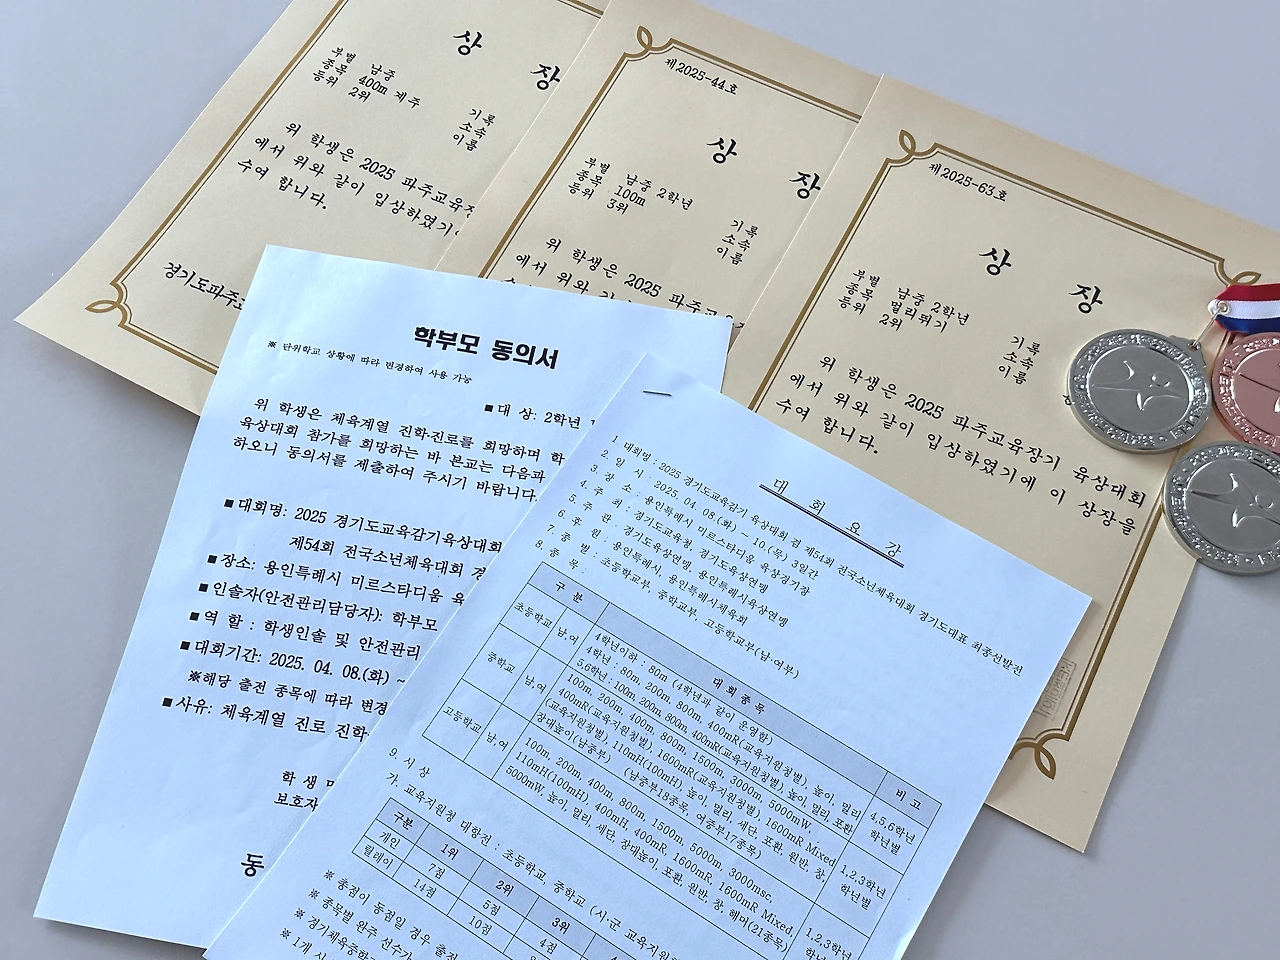 상 장
부별 남중
종목 400m 계주
등위 2위
기록
소속
이름
위 학생은 2025 파주교육장
에서 위와 같이 입상하였기
수여 합니다.
경기도파주교
제2025-44호
상 장
부별 남중 2학년
종목 100m
등위 3위
기록
소속
이름
위 학생은 2025 파주교
에서 위와 같
제2025-63호
상 장
부별 남중 2학년
종목 멀리뛰기
등위 2위
기록
소속
이름
위 학생은 2025 파주교육장기 육상대회
에서 위와 같이 입상하였기에 이 상장을
수여 합니다.
학부모 동의서
※ 단위학교 상황에 따라 변경하여 사용 가능
■ 대 상: 2학년
위 학생은 체육계열 진학·진로를 희망하며 학
육상대회 참가를 희망하는 바 본교는 다음과
하오니 동의서를 제출하여 주시기 바랍니다.
■ 대회명: 2025 경기도교육감기육상대회
제54회 전국소년체육대회 경
■ 장소: 용인특례시 미르스타디움 육
■ 인솔자(안전관리담당자): 학부모
■ 역 할 : 학생인솔 및 안전관리
■ 대회기간: 2025. 04. 08.(화) ~
※해당 출전 종목에 따라 변경
■ 사유: 체육계열 진로 진학
학 생
보호자
동
대 회 요 강
1. 대회명 : 2025 경기도교육감기 육상대회 겸 제54회 전국소년체육대회 경기도대표 최종선발전
2. 일 시 : 2025. 04. 08.(화) ~ 10.(목) 3일간
3. 장 소 : 용인특례시 미르스타디움 육상경기장
4. 주 최 : 경기도교육청, 경기도육상연맹
5. 주 관 : 경기도육상연맹, 용인특례시육상연맹
6. 후 원 : 용인특례시, 용인특례시체육회
7. 종 별 : 초등학교부, 중학교부, 고등학교부(남·여부)
8. 종 목 :
구 분 대 회 종 목 비 고
초등학교 남,여 4학년이하 : 80m (4학년과 같이 운영함)
4학년 : 80m, 200m, 800m, 400mR(교육지원청별)
5,6학년 : 100m, 200m, 800m, 400mR(교육지원청별), 높이, 멀리, 포환
4,5,6학년
학년별
중학교 남,여 100m, 200m, 400m, 800m, 1500m, 3000m, 5000mW,
400mR(교육지원청별), 1600mR(교육지원청별), 1600mR Mixed
(교육지원청별), 110mH(100mH), 높이, 멀리, 세단, 포환, 원반, 창,
장대높이(남중부) (남중부18종목, 여중부17종목)
1,2,3학년
학년별
고등학교 남,여 100m, 200m, 400m, 800m, 1500m, 5000m, 3000msc,
110mH(100mH), 400mH, 400mR, 1600mR, 1600mR Mixed,
5000mW, 높이, 멀리, 세단, 장대높이, 포환, 원반, 창, 해머(21종목)
1,2,3학년
학년
9. 시 상
가. 교육지원청 대항전 : 초등학교, 중학교 (시·군 교육지원
구분 1위 2위 3위
개인 7점 5점 4점
릴레이 14점 10점
※ 총점이 동점일 경우 출전
※ 종목별 완주 선수가
※ 경기체육중학교
※ 1개 시